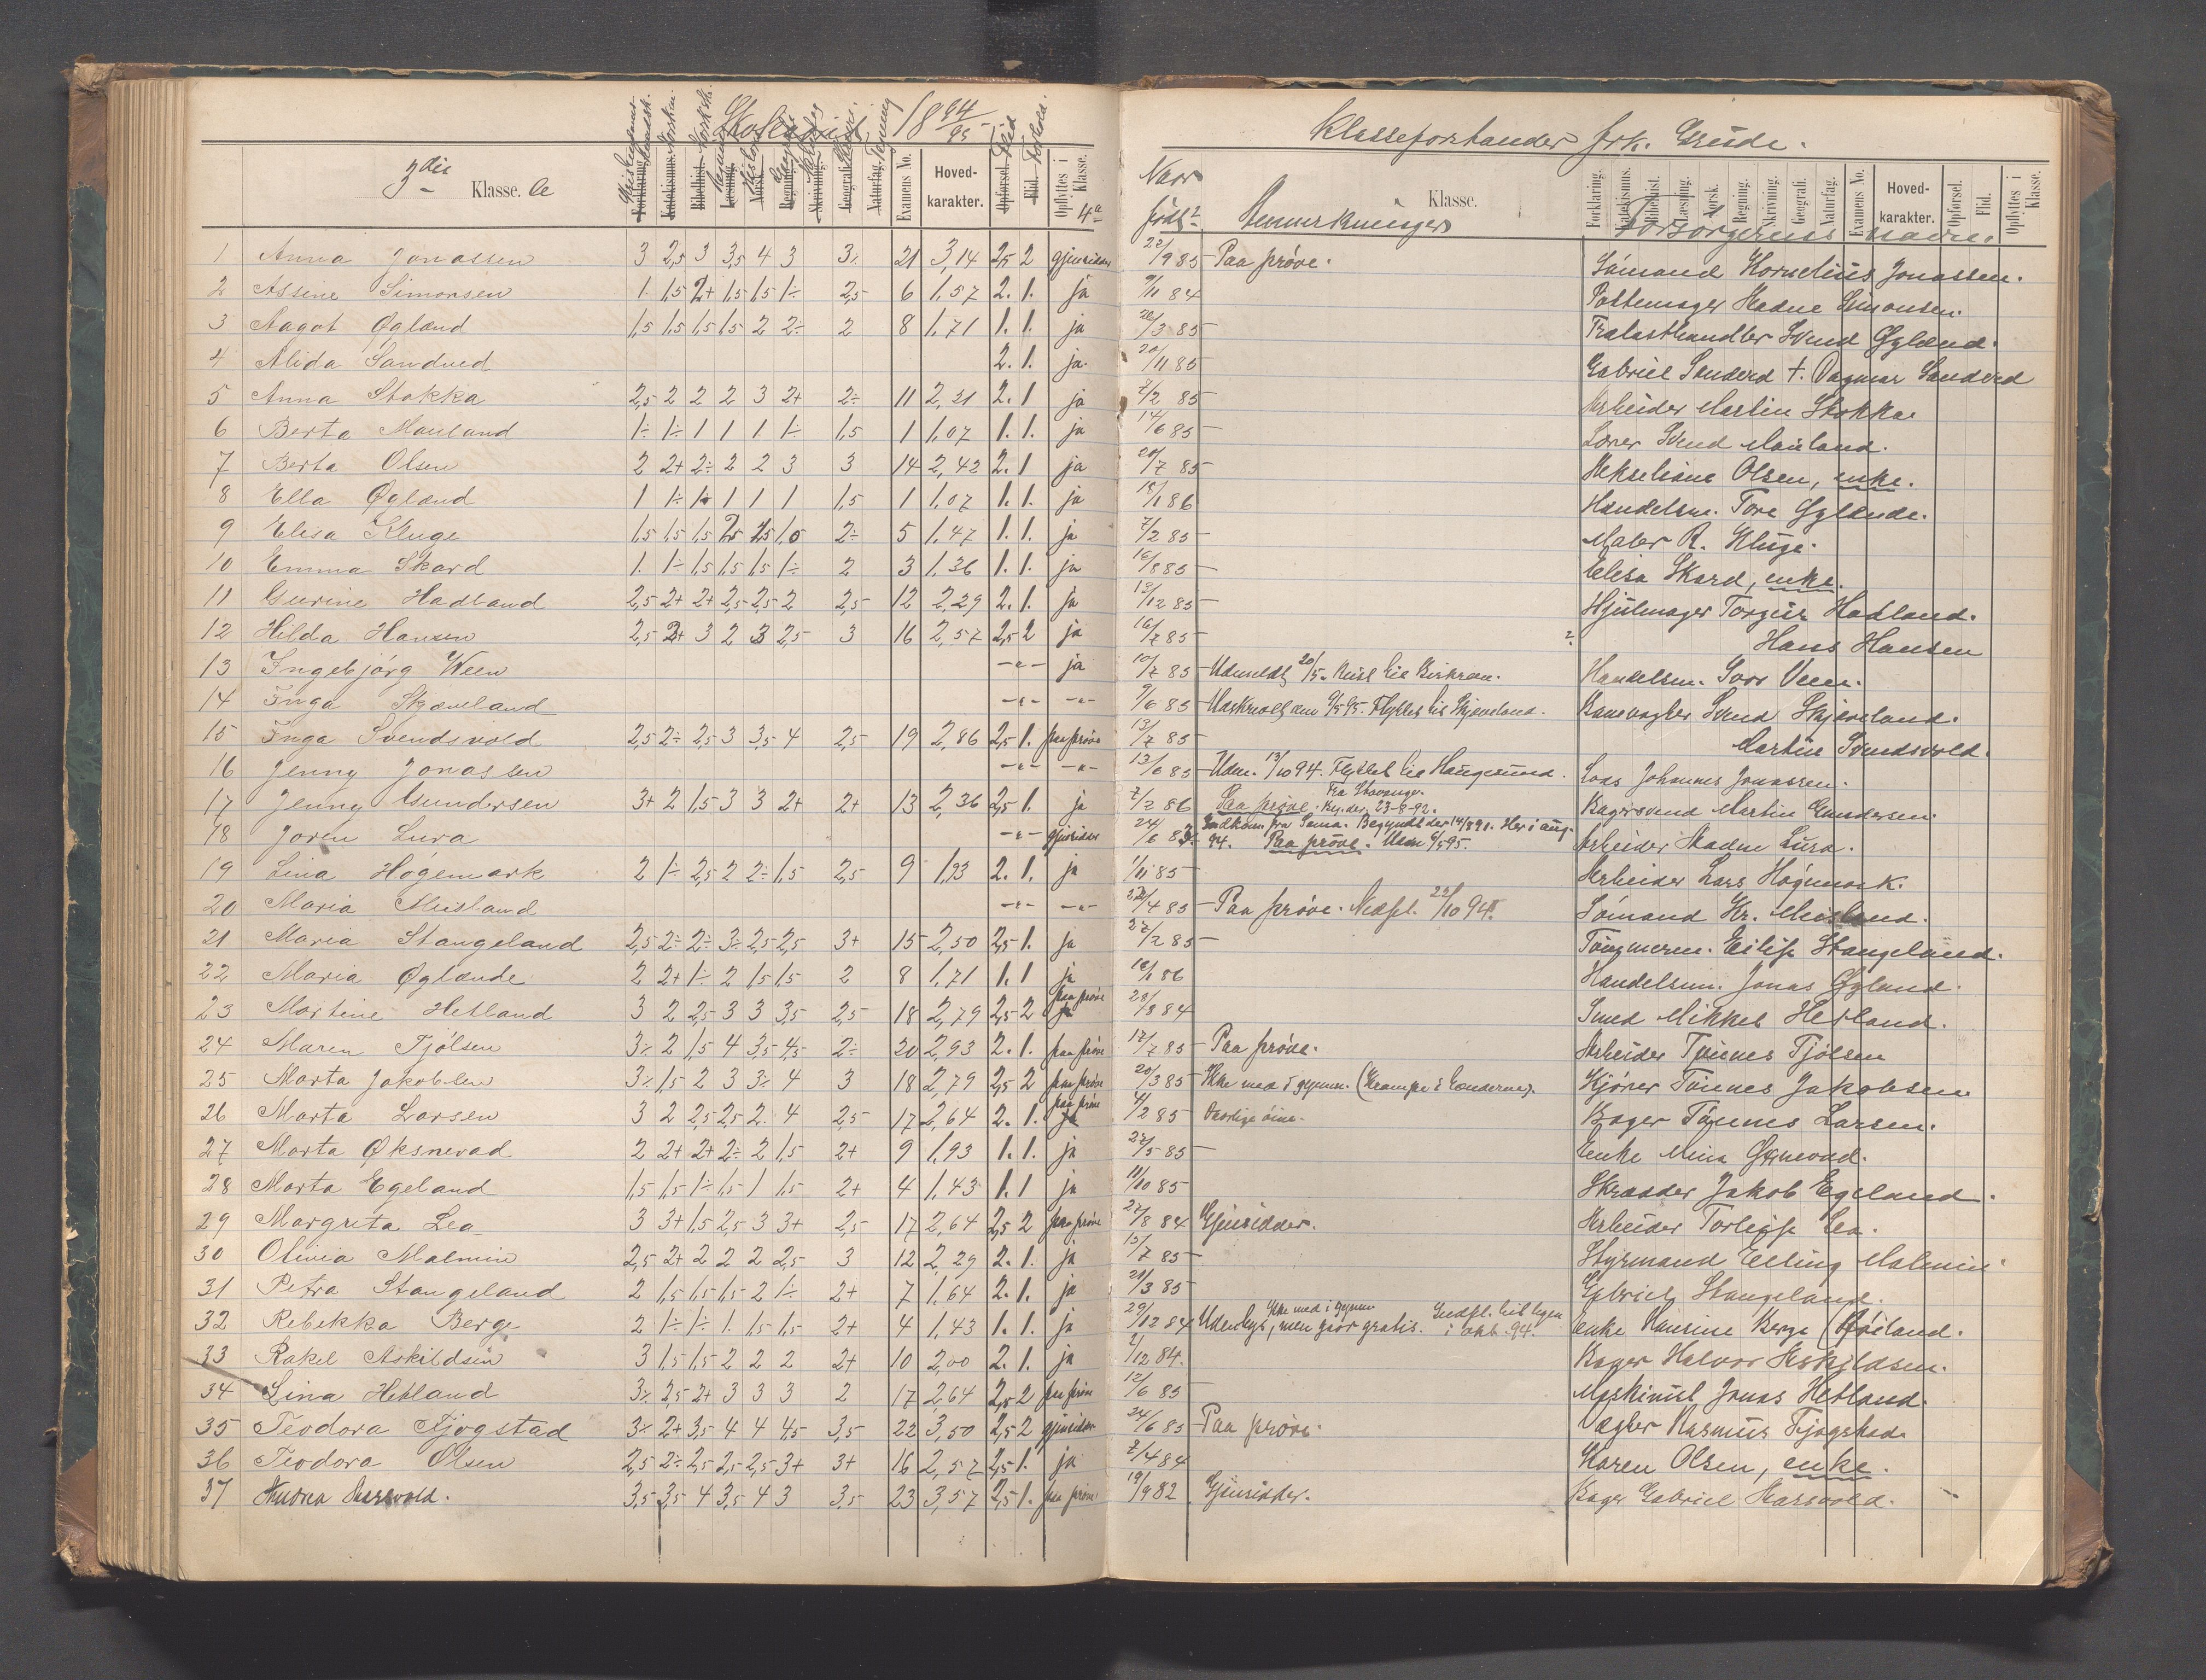 Skoleaaret 1894/95
3die Klasse. a
Examens No. Hovedkarakter. Opflyttes i Klasse. 4a
1 Anna Jonassen 3 2,5 3 3,5 4 3 3÷ 21 3,14 2,5 2 gjensidder
2 Assine Simonsen 1. 1,5 2+ 1,5 1,5 1÷ 2,5 6 1,57 2. 1. ja
3 Aagot Øgland 1,5 1,5 1,5 1,5 2 2÷ 2 8 1,71 1. 1. ja
4 Alida Sandved 2. 1. ja.
5 Anna Stokka 2,5 2 2 2 3 2+ 2÷ 11 2,21 2. 1 ja
6 Berta Mauland 1÷ 1÷ 1 1 1. 1÷ 1,5 1 1,07 1. 1. ja
7 Berta Olsen 2 2+ 2÷ 2 2 3 3 14 2,42 2. 1 ja
8 Ella Øgland 1 1÷ 1÷ 1 1 1 1,5 1 1,07 1. 1. ja
9 Elisa Kluge 1,5 1,5 1,5 2,5 1,5 1,0 2÷ 5 1,47 1. 1. ja
10 Emma Skard 1. 1÷ 1,5 1,5 1,5 1÷ 2 3 1,36 1. 1. ja
11 Gurine Hadland 2,5 2+ 2+ 2,5 2,5 2 2,5 12 2,29 2. 1. ja
12 Hilda Hansen 2,5 2+ 3 2 3 2,5 3 16 2,57 2,5 2 ja
13 Ingebjörg Ween -"- ja
14 Inga Skjæveland -"- -"-
15 Inga Svendsvold 2,5 2÷ 2,5 3 3,5 4 2,5 19 2,86 2,5 1. paa prøve
16 Jenny Jonassen -"- -"-
17 Jenny Gundersen 3+ 2 1,5 3 3 2+ 2+ 13 2,36 2,5 1. ja
18 Joren Lura -"- gjensidder
19 Lina Høgemark 2 1÷ 2,5 2 2÷ 1,5 2,5 9 1,93 2. 1. ja
20 Maria Meisland -"- -"-
21 Maria Stangeland 2,5 2÷ 2÷ 3÷ 2,5 2,5 3+ 15 2,50 2,5 1. ja
22 Maria Øglænde 2 2+ 1÷ 2 1,5 1,5 2 8 1,71 1. 1 ja
23 Martine Hetland 3 2 2,5 3 3 3,5 2,5 18 2,79 2,5 2 paa prøve
24 Maren Tjölsen 3÷ 2 1,5 4 3,5 4,5 2÷ 20 2,93 2. 1. paa prøve
25 Marta Jakobsen 3÷ 1,5 2 3 3÷ 4 3 18 2,79 2,5 2 paa prøve
26 Marta Larsen 3 2 2,5 2,5 2. 4 2,5 17 2,64 2. 1. paa prøve
27 Marta Øksnevad 2 2+ 2+ 2÷ 2 1,5 2+ 9 1,93 1. 1. ja
28 Marta Egeland 1,5 1,5 1÷ 1,5 1 1,5 2+ 4 1,43 1. 1 ja
29 Margreta Lea 3 3+ 1,5 2,5 3 3+ 2,5 17 2,64 2,5 2 paa prøve
30 Olivia Malmin 2,5 2+ 2 2 2 2,5 3 12 2,29 2. 1. ja
31 Petra Stangeland 2 1,5 1,5 1,5 2 1÷ 2+ 7 1,64 2. 1. ja
32 Rebekka Berge 2 1÷ 1÷ 1. 1,5 1,5 2+ 4 1,43 1. 1. ja
33 Rakel Askildsen 3 1,5 1,5 2 2 2 2+ 10 2,00 2. 1. ja
34 Sina Hetland 3÷ 2,5 2+ 3 3 3 2 17 2,64 2,5 2 paa prøve
35 Teodora Fjogstad 3÷ 2+ 3,5 4 4 4,5 3,5 22 3,50 2,5 2 gjensidder
36 Teodora Olsen 2,5 2÷ 2,5 2,5 2,5 3+ 3+ 16 2,57 2,5 1. ja
37 Andrea Harsvold. 3,5 3,5 4 3,5 4 3 3,5 23 3,57 2,5 1. paa prøve
Klasseforstander frk. Grude.
Naar født? Anmerkninger Klasse. Forsørgerens navne.
Forklaring. Katekismus. Bibelhist. Læsning. Norsk. Regning. Skrivning. Geografi. Naturfag. Examens No. Hovedkarakter. Opførsel. Flid. Opflyttes i Klasse.
27/9 85 Paa prøve. Sömand Kornelius Jonassen.
9/11 84 Pottemager Hadne Simonsen.
22/3 85 Trælasthandler Svend Øgland.
20/11 85 Gabriel Sandved †. Dagmar Sandved
7/2 85 Arbeider Martin Stokka.
14/6 85 Lærer Svend Mauland.
20/7 85 Akseliane Olsen, enke.
18/1 86 Handelsm. Tore Øglænde.
7/2 85 Maler R. Kluge.
16/8 85 Elisa Skard, enke.
13/12 85 Hjulmager Torger Hadland.
16/7 85 ? Hans Hansen
10/7 85 Udmeldt 20/5. Reist til Birkrem. Handelsm. Goor Veen.
9/6 85 Udskrevet den 9/5 95. Flyttet til Skjæveland. Banevogter Svend Skjæveland.
13/7 85 Martin Svendsvold.
13/6 85 Udm. 13/10 94. Flyttet til Haugesund. Lods Johannes Jonassen.
7/2 86 Paa prøve. Fra Stavanger. Beg. der 23-8-92. Bagersvend Martin Gundersen.
24/6 83 Indkom. fra Soma. Begyndt der 14/8 91. Her i aug. 94. Paa prøve. Udm 6/5 95. Arbeider Hadne Lura.
1/11 85 Arbeider Lars Högemork.
22/4 85 Paa prøve. Nedfl. 22/10 94. Sömand Kr. Meisland.
27/2 85 Tömmerm. Eilif Stangeland.
18/1 86 Handelsm. Jonas Øgland.
28/8 84 Smed Mikkel Hetland.
17/7 85 Paa prøve. Arbeider Tønnes Tjölsen
20/3 85 Ikke med i gymn. (Krampe i Lænderne). Kjører Tönnes Jakobsen
4/2 85 Daarlige öine. Bager Tönnes Larsen.
27/5 85 Enke Mina Øxnevad.
11/10 85 Skrædder Jakob Egeland.
27/8 84 Gjensidder. Arbeider Torleif Lea.
15/7 85 Styrmand Elling Malmin
21/3 85 Gabriel Stangeland.
29/12 84 Udenbys, men gaar gratis. Ikke med i gymn Indfl. i okt. 94. Enke Hansine Berge (Höiland.
2/12 84. Bager Halvor Askildsen.
12/6 85 Maskinist Jonas Hetland.
24/6 85 Paa prøve. Vægter Rasmus Fjogstad
7/4 84 Karen Olsen, enke.
19/9 82 Gjensidder. Bager Gabriel Harsvold.